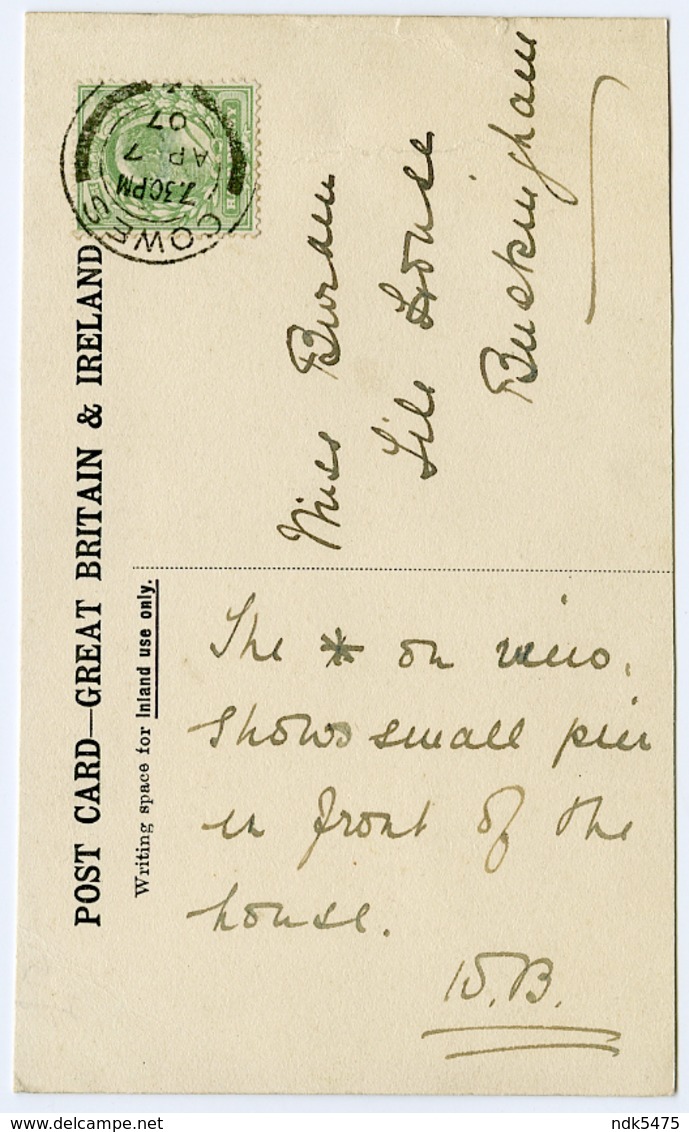 POST CARD—GREAT BRITAIN & IRELAND
Writing space for Inland use only.
COWES
7.30 PM
AP 7
07
Miss
House
Buckingham
The * on
shows small pier
in front of the
house.
W.B.
ndk5475